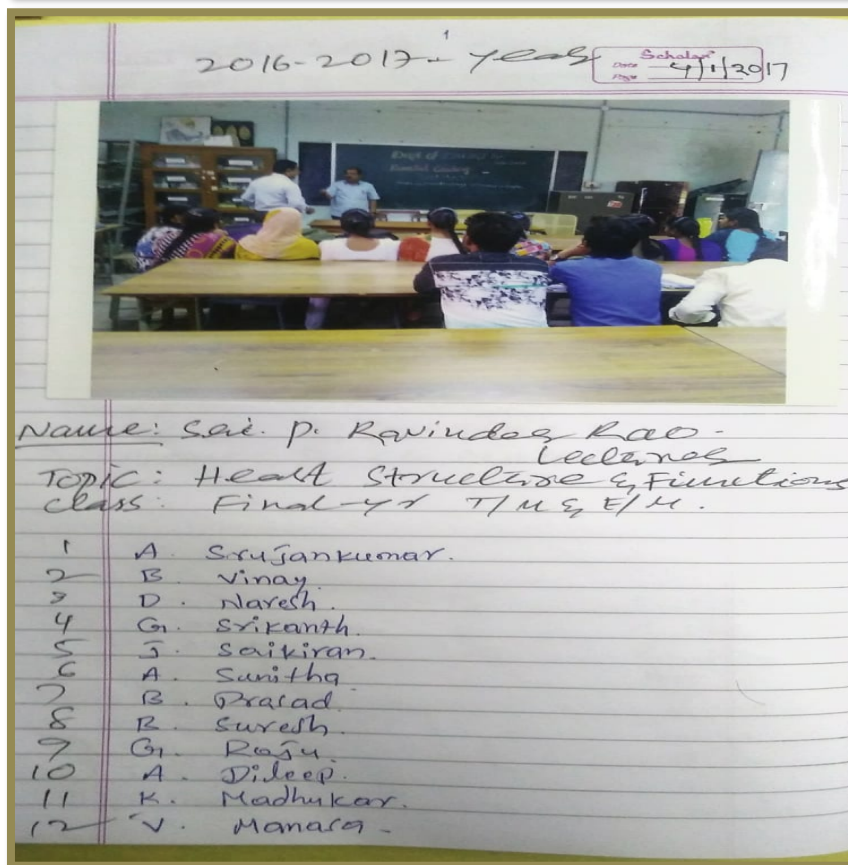 1
2016-2017 - year
Scholar
Date 4/1/2017
Page
Dept of Zoology
Name: Sri. P. Ravinder Rao -
Lecturer
Topic: Heart Structure & Functions
Class: Final-yr T/M & E/M.
1 A. Srujankumar.
2 B. Vinay.
3 D. Naresh.
4 G. Srikanth.
5 J. Saikiran.
6 A. Sunitha
7 B. Prasad
8 B. Suresh.
9 G. Raju.
10 A. Dileep.
11 K. Madhukar.
12 V. Manasa -